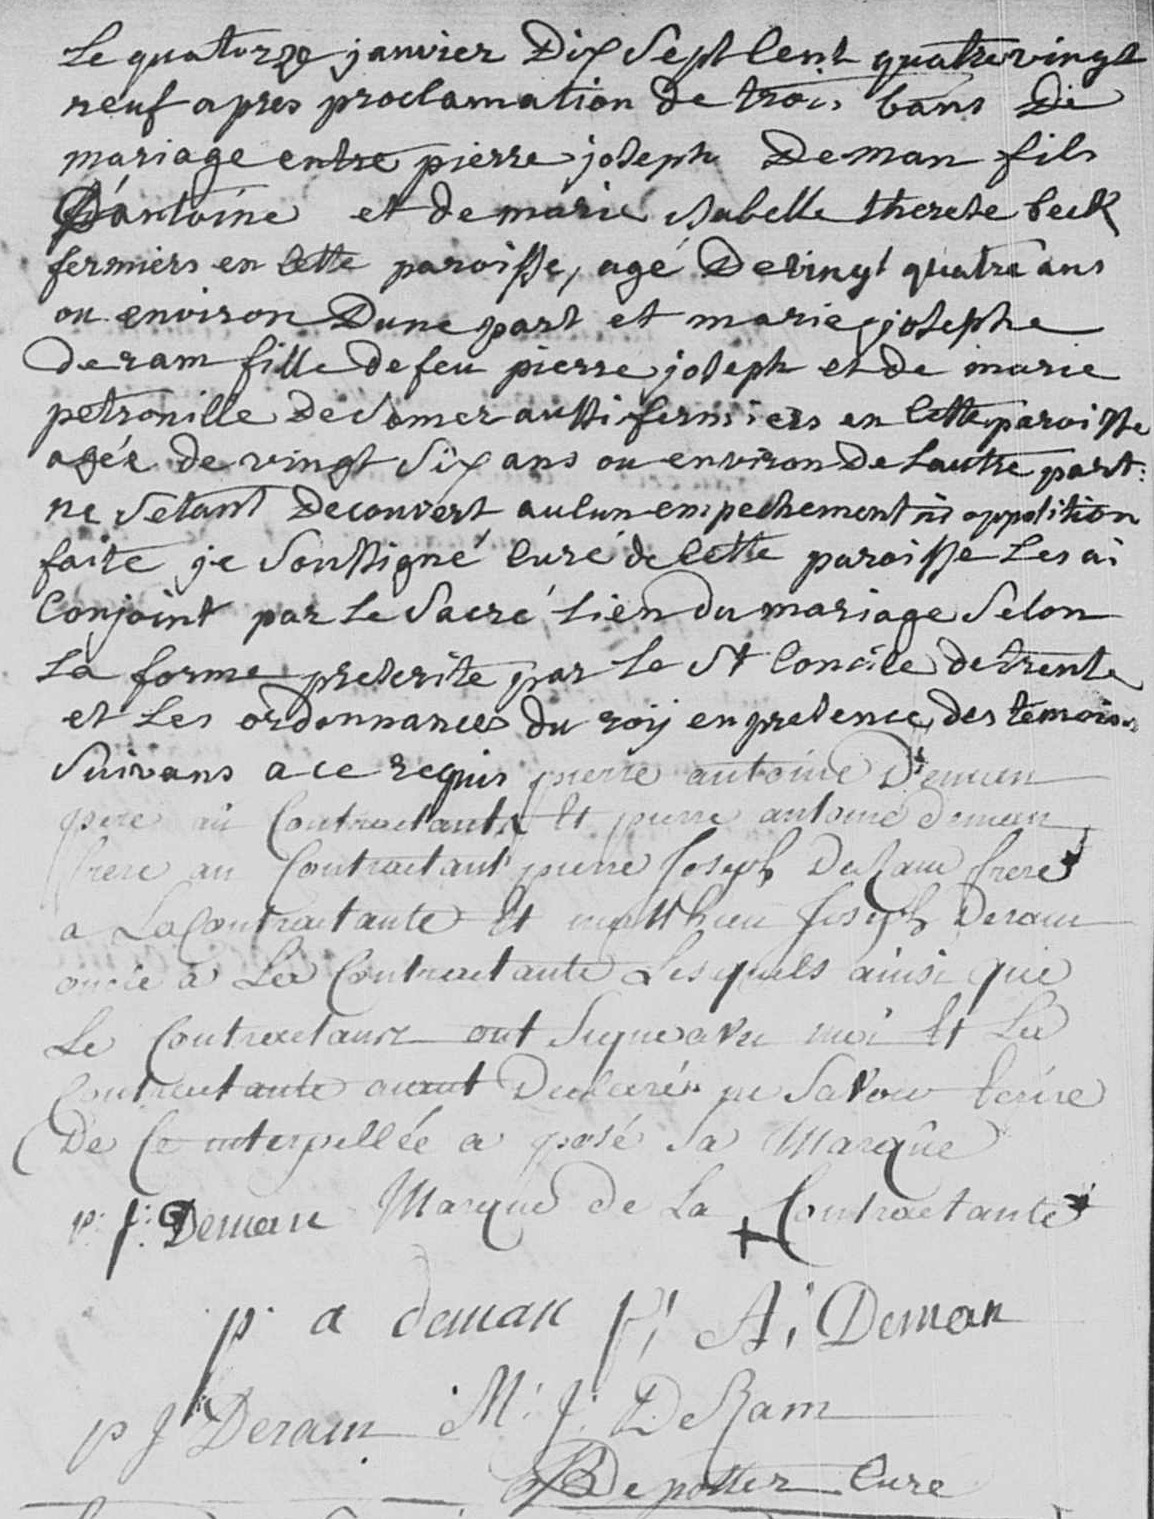 Le quatorze janvier Dix Sept Cent quatre vingt
neuf apres proclamation de trois bans De
mariage entre pierre joseph Deman fils
D'antoine et de marie isabelle therese beck
fermiers en cette paroisse, agé De vingt quatre ans
ou environ Dune part et marie josephe
deram fille de feu pierre joseph et de marie
petronille De somer aussi fermiers en cette paroisse
agée de vingt Six ans ou environ De Lautre part:
ne Setant Decouvert aucun empechement ni opposition
faite je Soussigné Curé de cette paroisse Les ai
Conjoint par Le Sacré Lien du mariage Selon
La forme prescrite par Le St Concile de trente
et Les ordonnances du roij en presence des temoins
Suivans a ce requis pierre antoine Deman
pere au Contractant Et pierre antoine deman
frere au Contractant pierre Joseph DeRam frere
a La Contractante Et matthieu Joseph Deram
oncle a La Contractante Lesquels ainsi que
Le Contractant ont Signe avec moi Et La
Contractante aiant Declaré ne Savoir Ecrire
De Ce interpellée a posé sa Marque
p: j: Deman Marque de La + Contractante
p. a deman p: A: Deman
p J Deram M: J: DeRam
De potter Cure